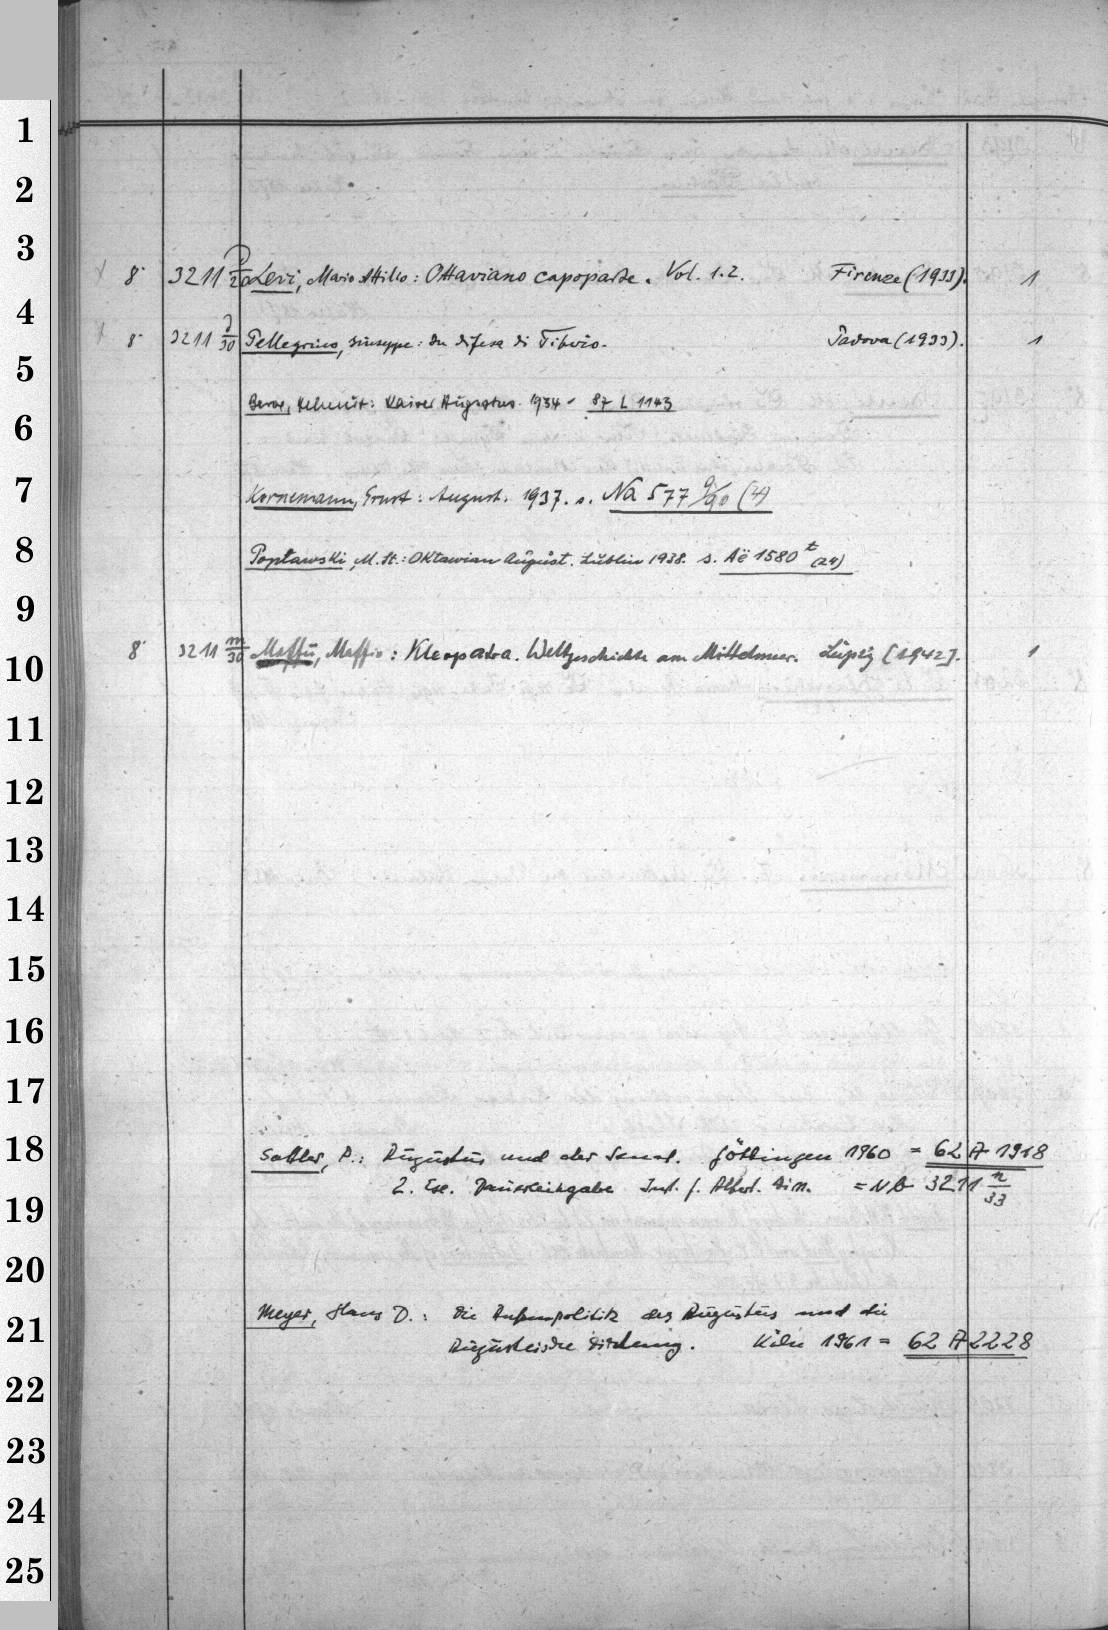 1
2
3
8° 3211 i/20 Levi, Mario Attilio: Ottaviano capoparte. Vol. 1.2. Firenze (1933). 1
4
8° 3211 j/30 Pellegrino, Giuseppe: In difesa di Tiberio. Padova (1933). 1
5
Berve, Helmut: Kaiser Augustus. 1934 = 87 L 1143
6
7
Kornemann, Ernst: August. 1937. s. Na 577 (4)
8
Popławski, M. St.: Oktawian August. Lublin 1938. s. Aë 1580 t (24)
9
8° 3211 m/30 Maffii, Maffio: Kleopatra. Weltgeschichte am Mittelmeer. Leipzig [1942]. 1
10
11
12
13
14
15
16
17
18
Sattler, P.: Augustus und der Senat. Göttingen 1960 = 62 A 1918
2. Ex. Inst. f. = Nb 3211 n/33
19
20
Meyer, Hans D.: Die Außenpolitik des Augustus und die
21
Augusteische Dichtung. Köln 1961 = 62 A 2228
22
23
24
25